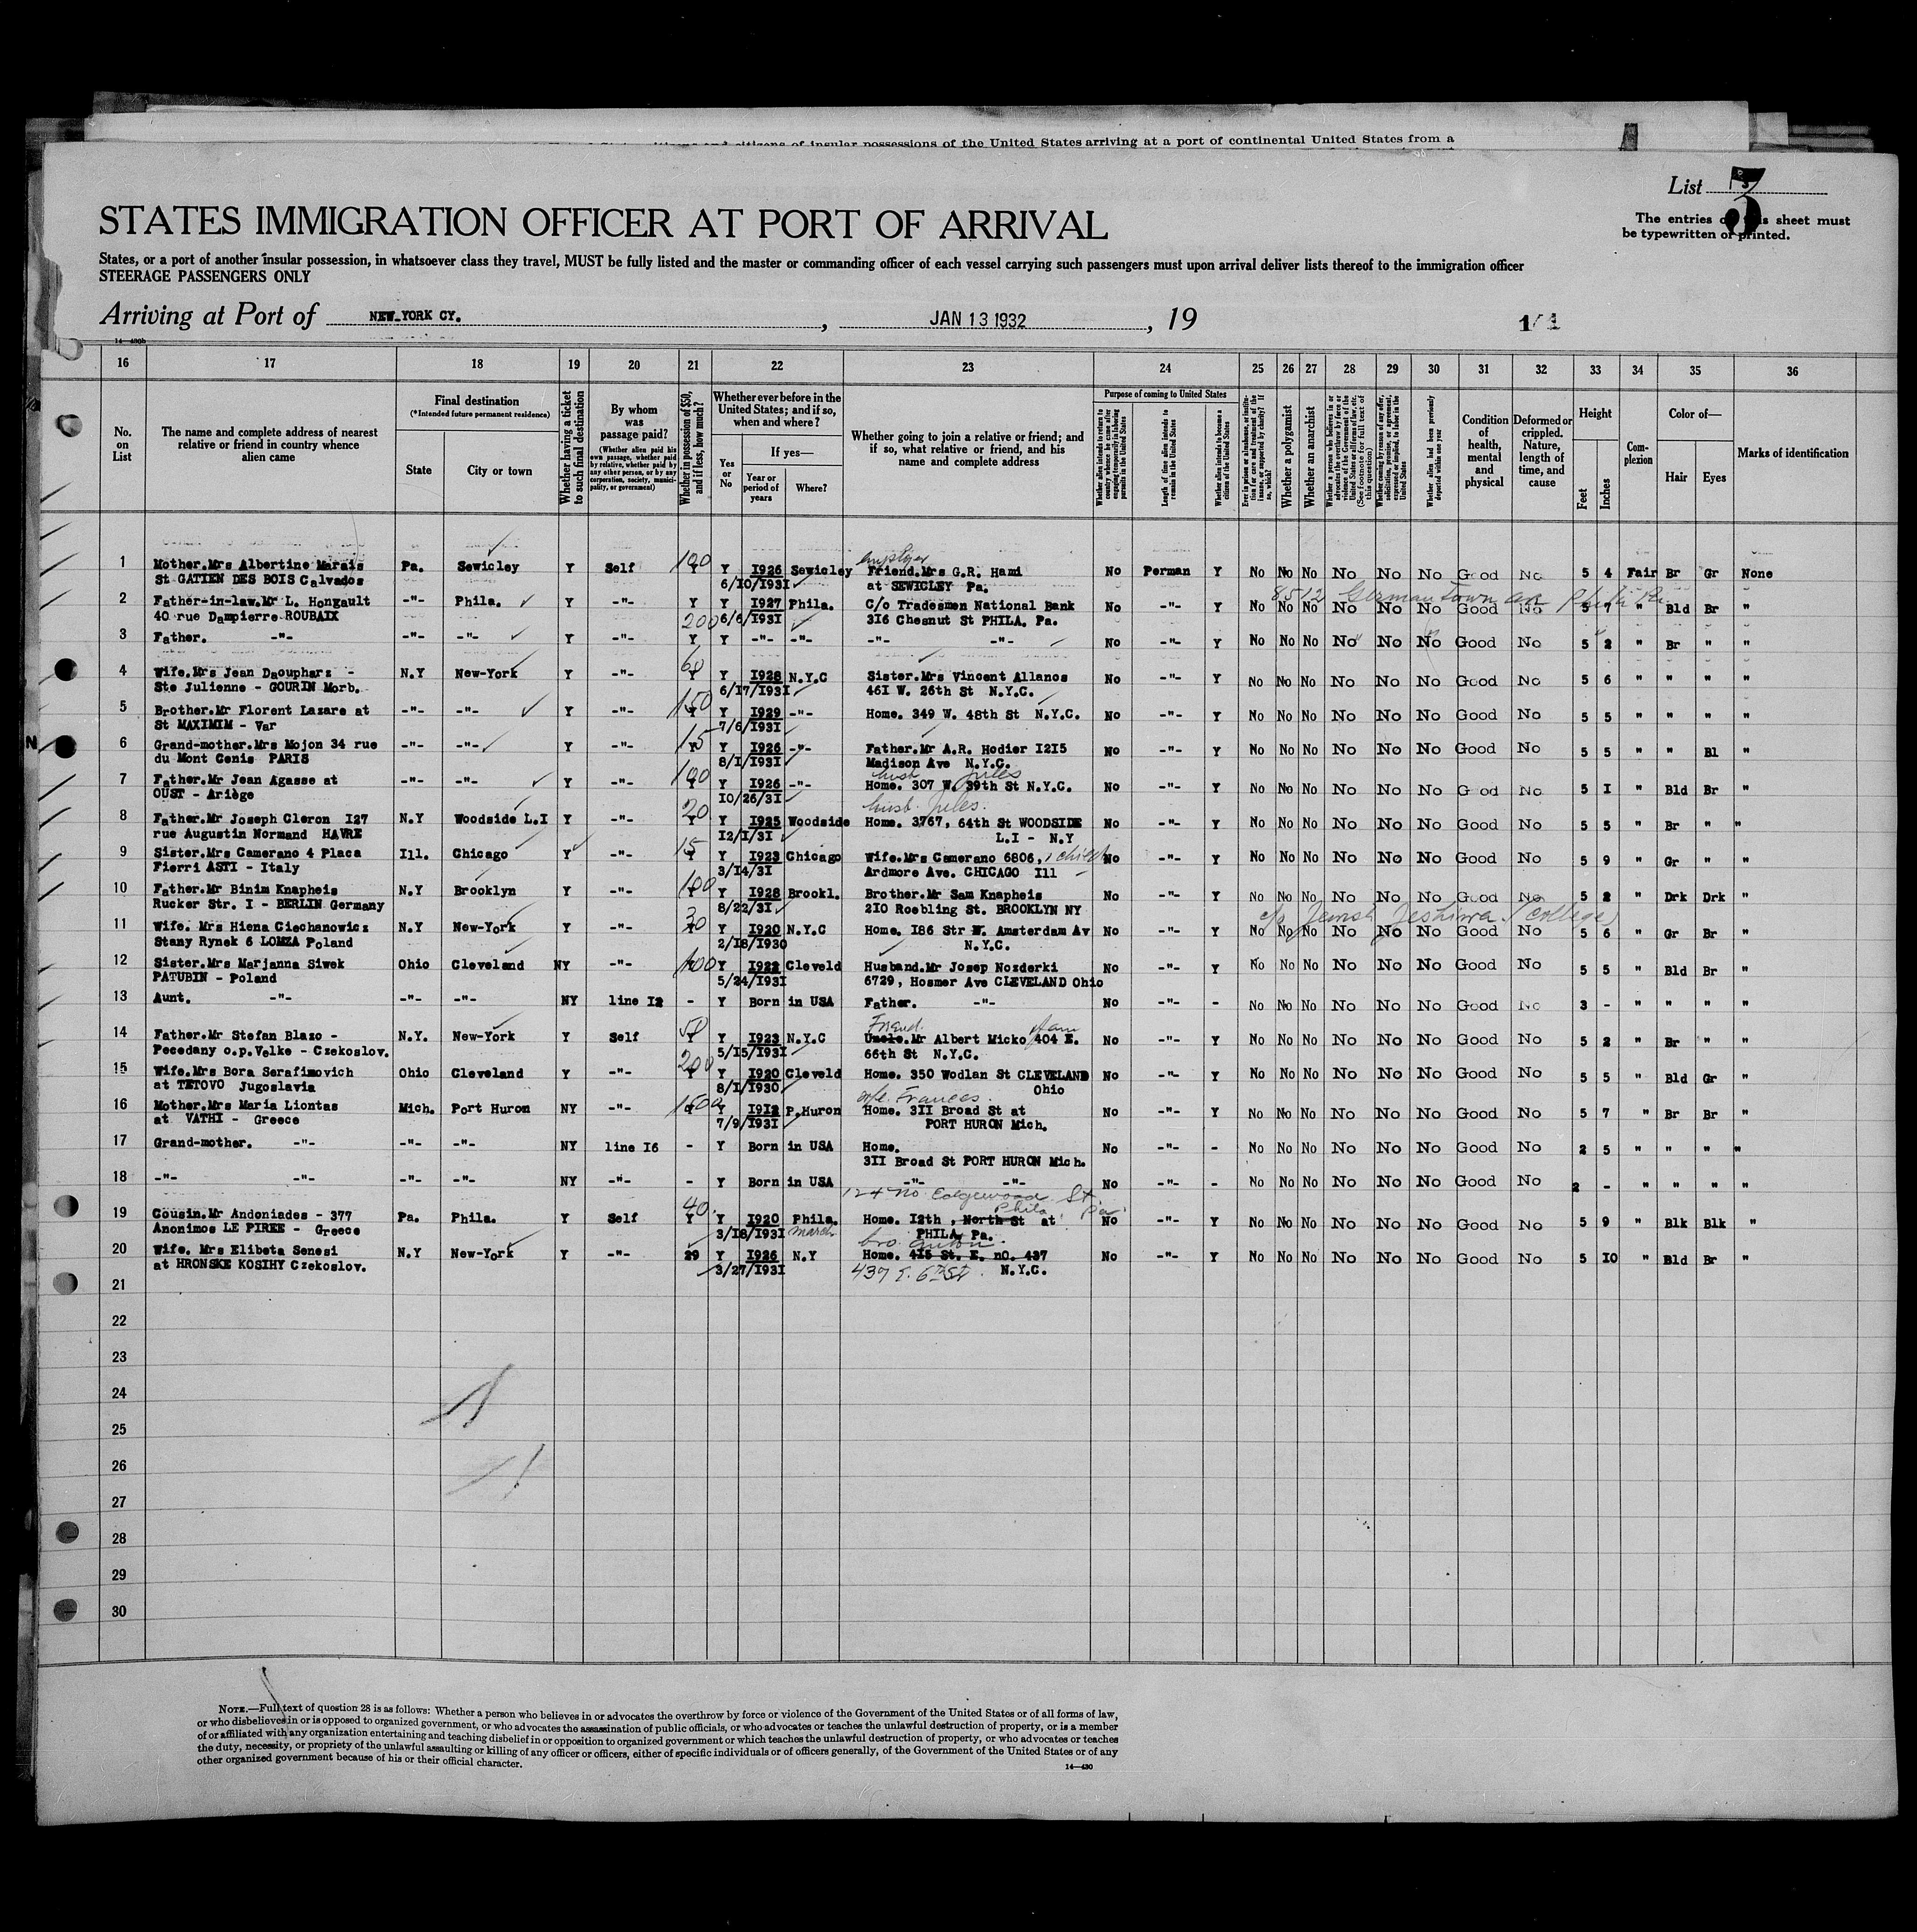 of insular possessions of the United States arriving at a port of continental United States from a
List 3
STATES IMMIGRATION OFFICER AT PORT OF ARRIVAL
The entries of this sheet must
be typewritten or printed.
States, or a port of another insular possession, in whatsoever class they travel, MUST be fully listed and the master or commanding officer of each vessel carrying such passengers must upon arrival deliver lists thereof to the immigration officer
STEERAGE PASSENGERS ONLY
Arriving at Port of NEW-YORK CY. , JAN 13 1932 , 19
16 17 18 19 20 21 22 23 24 25 26 27 28 29 30 31 32 33 34 35 36
No. on List
The name and complete address of nearest relative or friend in country whence alien came
Final destination
(*Intended future permanent residence)
State
City or town
Whether having a ticket to such final destination
By whom was passage paid?
(Whether alien paid his own passage, whether paid by relative, whether paid by any other person, or by any corporation, society, municipality, or government)
Whether in possession of $50, and if less, how much?
Whether ever before in the United States; and if so, when and where?
Yes or No
If yes—
Year or period of years
Where?
Whether going to join a relative or friend; and if so, what relative or friend, and his name and complete address
Purpose of coming to United States
Whether alien intends to return to country whence he came after engaging temporarily in laboring pursuits in the United States
Length of time alien intends to remain in the United States
Whether alien intends to become a citizen of the United States
Ever in prison or almshouse, or institution for care and treatment of the insane, or supported by charity? If so, which?
Whether a polygamist
Whether an anarchist
Whether a person who believes in or advocates the overthrow by force or violence of the Government of the United States or all forms of law, etc. (See footnote for full text of this question)
Whether coming by reason of any offer, solicitation, promise, or agreement, expressed or implied, to labor in the United States
Whether alien had been previously deported within one year
Condition of health, mental and physical
Deformed or crippled. Nature, length of time, and cause
Height
Feet
Inches
Complexion
Color of—
Hair
Eyes
Marks of identification
employer
1 Mother.Mrs Albertine Marais Pa. Sewicley Y Self 100 Y Y 1926 Sewicley Friend.Mrs G.R. Hami No Perman Y No No No No No No Good No 5 4 Fair Br Gr None
St GATIEN DES BOIS Calvados 6/10/1931 at SEWICLEY Pa.
8512 Germantown Ave Phila Pa
2 Father-in-law.Mr L. Hongault -"- Phila. Y -"- Y Y 1927 Phila. C/o Tradesmen National Bank No -"- Y No No No No No No Good No 5 7 " Bld Br "
40 rue Dampierre ROUBAIX 200 6/6/1931 316 Chesnut St PHILA. Pa.
3 Father. -"- -"- -"- Y -"- Y Y -"- -"- -"- -"- No -"- Y No No No No No No Good No 5 2 " Br " "
4 Wife.Mrs Jean Daoupharz - N.Y New-York Y -"- 60 Y Y 1928 N.Y.C Sister.Mrs Vincent Allanos No -"- Y No No No No No No Good No 5 6 " " " "
Ste Julienne - GOURIN Morb. 6/17/1931 461 W. 26th St N.Y.C.
5 Brother.Mr Florent Lazare at -"- -"- Y -"- 150 Y Y 1929 -"- Home. 349 W. 48th St N.Y.C. No -"- Y No No No No No No Good No 5 5 " " " "
St MAXIMIM - Var 7/6/1931
6 Grand-mother.Mrs Mojon 34 rue -"- -"- Y -"- 15 Y Y 1926 -"- Father.Mr A.R. Hodier 1215 No -"- Y No No No No No No Good No 5 5 " " Bl "
du Mont Cenis PARIS 8/1/1931 Madison Ave N.Y.C.
husb Jules
7 Father.Mr Jean Agasse at -"- -"- Y -"- 100 Y Y 1926 -"- Home. 307 W. 39th St N.Y.C. No -"- Y No No No No No No Good No 5 1 " Bld Br "
OUST - Ariège 10/26/31
husb. Jules.
8 Father.Mr Joseph Cleron 127 N.Y Woodside L.I Y -"- 20 Y Y 1925 Woodside Home. 3767, 64th St WOODSIDE No -"- Y No No No No No No Good No 5 5 " Br " "
rue Augustin Normand HAVRE 12/1/31 L.I - N.Y
9 Sister.Mrs Camerano 4 Placa Ill. Chicago Y -"- 15 Y Y 1923 Chicago Wife.Mrs Camerano 6806, 1 child No -"- Y No No No No No No Good No 5 9 " Gr " "
Fierri ASTI - Italy 3/14/31 Ardmore Ave. CHICAGO Ill
10 Father.Mr Binim Knapheis N.Y Brooklyn Y -"- 100 Y Y 1928 Brookl. Brother.Mr Sam Knapheis No -"- Y No No No No No No Good No 5 2 " Drk Drk "
Rucker Str. I - BERLIN Germany 8/22/31 210 Roebling St. BROOKLYN NY
c/o Jewish Yeshiwa (college)
11 Wife. Mrs Hiena Ciechanowicz N.Y New-York Y -"- 30 Y Y 1920 N.Y.C Home. 186 Str W. Amsterdam Av No -"- Y No No No No No No Good No 5 6 " Gr Br "
Stany Rynek 6 LOMZA Poland 2/18/1930 N.Y.C.
12 Sister.Mrs Marjanna Siwek Ohio Cleveland NY -"- 100 Y Y 1922 Cleveld Husband.Mr Josep Nozderki No -"- Y No No No No No No Good No 5 5 " Bld Br "
PATUBIN - Poland 5/24/1931 6729, Hosmer Ave CLEVELAND Ohio
13 Aunt. -"- -"- -"- NY line 12 - Y Born in USA Father. -"- No -"- - No No No No No No Good No 3 - " " " "
Friend. Adam
14 Father.Mr Stefan Blazo - N.Y. New-York Y Self 50 Y Y 1923 N.Y.C Uncle.Mr Albert Micko 404 E. No -"- Y No No No No No No Good No 5 2 " Br " "
Pecedany o.p.Velke - Czekoslov. 5/15/1931 66th St N.Y.C.
15 Wife.Mrs Bora Serafimovich Ohio Cleveland Y -"- 200 Y Y 1920 Cleveld Home. 350 Wodlan St CLEVELAND No -"- Y No No No No No No Good No 5 5 " Bld Gr "
at TETOVO Jugoslavia 8/1/1930 Ohio
wife. Frances.
16 Mother.Mrs Maria Liontas Mich. Port Huron NY -"- 1500 Y Y 1912 P.Huron Home. 311 Broad St at No -"- Y No No No No No No Good No 5 7 " Br Br "
at VATHI - Greece 7/9/1931 PORT HURON Mich.
17 Grand-mother. -"- -"- -"- NY line 16 - Y Born in USA Home. No -"- - No No No No No No Good No 2 5 " " " "
311 Broad St PORT HURON Mich.
18 -"- -"- -"- -"- NY -"- - Y Born in USA -"- -"- No -"- - No No No No No No Good No 2 - " " " "
124 No. Edgewood St.
Phila. Pa.
19 Cousin.Mr Andoniades - 377 Pa. Phila. Y Self 40. Y Y 1920 Phila. Home. 12th , North St at No -"- Y No No No No No No Good No 5 9 " Blk Blk "
Anonimos LE PIREE - Greece 3/18/1931 March PHILA Pa.
bro. Anton.
20 Wife. Mrs Elibeta Senesi N.Y New-York Y -"- 29 Y 1926 N.Y Home. 415 St. E. nO. 437 No -"- Y No No No No No No Good No 5 10 " Bld Br "
at HRONSKE KOSIHY Czekoslov. 3/27/1931 437 E. 6th St. N.Y.C.
21
22
23
24
25
26
27
28
29
30
NOTE.—Full text of question 28 is as follows: Whether a person who believes in or advocates the overthrow by force or violence of the Government of the United States or of all forms of law,
or who disbelieves in or is opposed to organized government, or who advocates the assassination of public officials, or who advocates or teaches the unlawful destruction of property, or is a member
of or affiliated with any organization entertaining and teaching disbelief in or opposition to organized government or which teaches the unlawful destruction of property, or who advocates or teaches
the duty, necessity, or propriety of the unlawful assaulting or killing of any officer or officers, either of specific individuals or of officers generally, of the Government of the United States or of any
other organized government because of his or their official character.
14—430